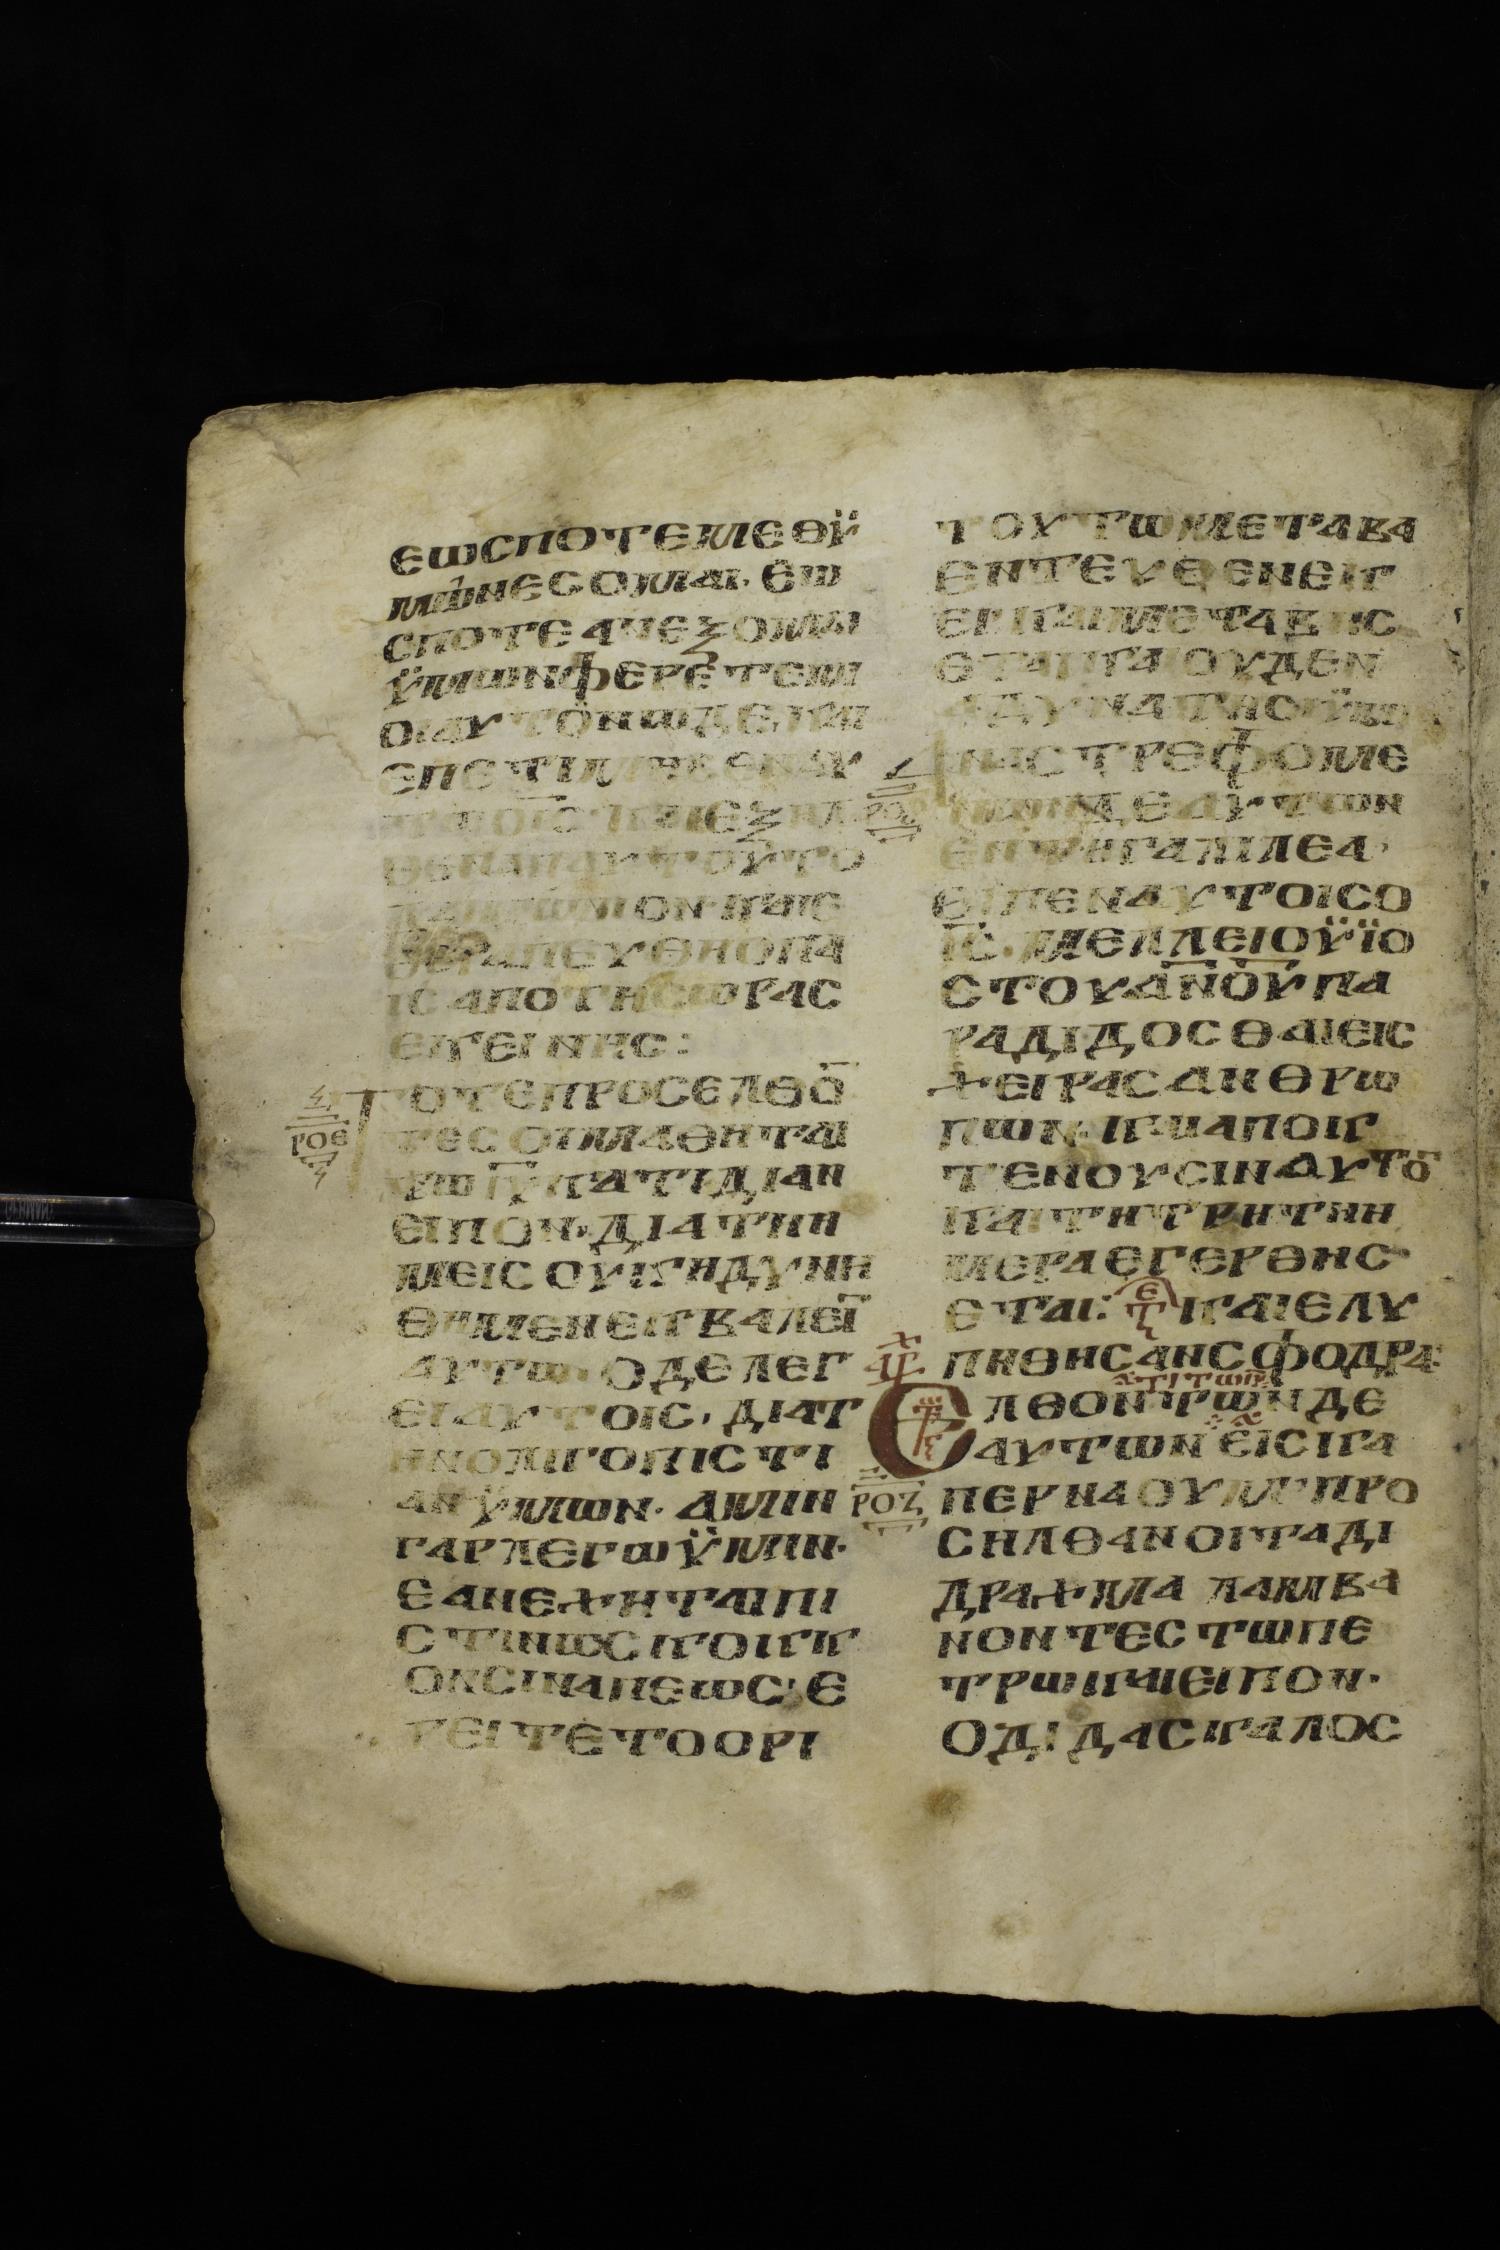 ΕωϹΠΟΤΕΜΕΘΫ
ΜωΝΕϹΟΜΑΙ· Εω
ϹΠΟΤΕΑΝΕΞΟΜΑΙ
ΫΜωΝΦΕΡΕΤΕΜ
ΟΙΑΥΤΟΝωΔΕ, ΚΑΙ
ΕΠΕΤΙΜΗϹΕΝΑΥ
ΤωΟΙ̅Ϲ̅· ΚΑΙΕΞΗΛ
ΘΕΝΑΠΑΥΤΟΥΤΟ
ΔΑΙΜωΝΙΟΝ·ΚΑΙΕ
ΘΕΡΑΠΕΥΘΗΟΠΑ
ΙϹΑΠΟΤΗϹωΡΑϹ
ΕΚΕΙΝΗϹ:
ΡΟΕ
ΤΟΤΕΠΡΟϹΕΛΘΟ̅
ΤΕϹΟΙΜΑΘΗΤΑΙ
ΤωΙ̅Υ̅ΚΑΤΙΔΙΑΝ
ΕΙΠΟΝ·ΔΙΑΤΗΗ
ΜΕΙϹΟΥΚΗΔΥΝΗ
ΘΗΜΕΝΕΚΒΑΛΕΙ̅
ΑΥΤω· ΟΔΕΛΕΓ
ΕΙΑΥΤΟΙϹ· ΔΙΑΤ
ΗΝΟΛΙΓΟΠΙϹΤΙ
ΑΝΫΜωΝ· ΑΜΙΝ
ΓΑΡΛΕΓωΫΜΙΝ·
ΕΑΝΕΧΗΤΑΙΠΙ
ϹΤΙΝωϹΚΟΙΚΚ
ΟΝϹΙΝΑΠΕωϹ· Ε
ΡΕΙΤΕΤΟΟΡΙ
ΤΟΥΤωΜΕΤΑΒΑ
ΕΝΤΕΥΘΕΝΕΚ
ΕΙΚΑΙΜΕΤΑΒΗϹ
ΕΤΑΙΚΑΙΟΥΔΕΝ
ΑΔΥΝΑΤΗϹΙΫΜΙ
ΑΝΑϹΤΡΕΦΟΜΕ
ΝωΝΔΕΑΥΤωΝ
ΕΝΤΗΓΑΛΙΛΕΑ·
ΕΙΠΕΝΑΥΤΟΙϹΟ
Ι̅Ϲ̅·ΜΕΛΛΕΙΟΫΪΟ
ϹΤΟΥΑ̅Ν̅Ο̅Υ̅ΠΑ
ΡΑΔΙΔΟϹΘΑΙΕΙϹ
ΧΕΙΡΑϹΑΝΘΡω
ΠωΝ·ΚΑΙΑΠΟΚ
ΤΕΝΟΥϹΙΝΑΥΤΟ̅
ΚΑΙΤΗΤΡΗΤΗΗ
ΜΕΡΑΕΓΕΡΘΗϹ
ΕΤΑΙ: ΚΑΙΕΛΥ
ΠΗΘΗϹΑΝϹΦΟΔΡΑ:
ΕΛΘΟΝΤωΝΔΕ
ΑΥΤωΝΕΙϹΚΑ
ΡΟΖ
ΠΕΡΝΑΟΥΜ ΠΡΟ
ϹΗΛΘΑΝΟΙΤΑΔΙ
ΔΡΑΧΜΑ ΛΑΜΒΑ
ΝΟΝΤΕϹΤωΠΕ
ΤΡωΚΑΙΕΙΠΟΝ·
ΟΔΙΔΑϹΚΑΛΟϹ